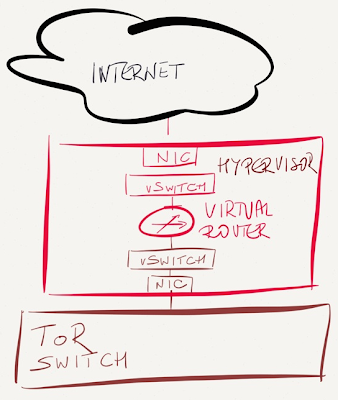 INTERNET
NIC
HYPERVISOR
vSWITCH
VIRTUAL
ROUTER
vSWITCH
NIC
ToR
SWITCH